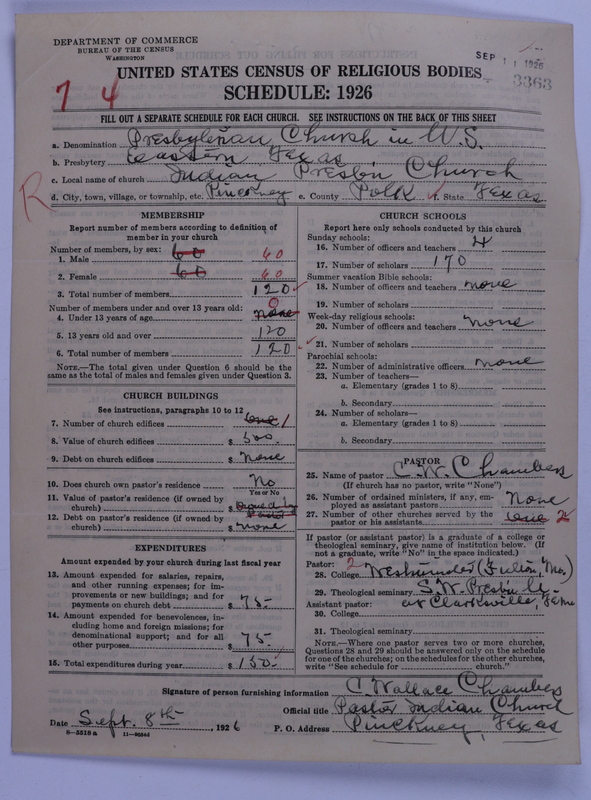 DEPARTMENT OF COMMERCE
BUREAU OF THE CENSUS
WASHINGTON
SEP 11 1926
3363
UNITED STATES CENSUS OF RELIGIOUS BODIES
SCHEDULE: 1926
7 4
FILL OUT A SEPARATE SCHEDULE FOR EACH CHURCH. SEE INSTRUCTIONS ON THE BACK OF THIS SHEET
a. Denomination Presbyterian Church in U.S.
b. Presbytery Eastern Texas
c. Local name of church Indian Presb'n Church
R
d. City, town, village, or township, etc. Pinckney e. County Polk f. State Texas
MEMBERSHIP
Report number of members according to definition of
member in your church
Number of members, by sex:
1. Male 60 60
2. Female 60 60
3. Total number of members 120
Number of members under and over 13 years old:
4. Under 13 years of age None 0
5. 13 years old and over 120
6. Total number of members 120
NOTE.—The total given under Question 6 should be the
same as the total of males and females given under Question 3.
CHURCH BUILDINGS
See instructions, paragraphs 10 to 12
7. Number of church edifices One 1
8. Value of church edifices $ 500
9. Debt on church edifices $ None
10. Does church own pastor's residence No
Yes or No
11. Value of pastor's residence (if owned by
church) $ Owned by Pastor
12. Debt on pastor's residence (if owned by
church) $ None
EXPENDITURES
Amount expended by your church during last fiscal year
13. Amount expended for salaries, repairs,
and other running expenses; for im-
provements or new buildings; and for
payments on church debt $ 75-
14. Amount expended for benevolences, in-
cluding home and foreign missions; for
denominational support; and for all
other purposes $ 75-
15. Total expenditures during year $ 150-
CHURCH SCHOOLS
Report here only schools conducted by this church
Sunday schools:
16. Number of officers and teachers 4
17. Number of scholars 170
Summer vacation Bible schools:
18. Number of officers and teachers None
19. Number of scholars
Week-day religious schools:
20. Number of officers and teachers None
21. Number of scholars
Parochial schools:
22. Number of administrative officers None
23. Number of teachers—
a. Elementary (grades 1 to 8)
b. Secondary
24. Number of scholars—
a. Elementary (grades 1 to 8)
b. Secondary
PASTOR
25. Name of pastor C. W. Chambers
(If church has no pastor, write "None")
26. Number of ordained ministers, if any, em-
ployed as assistant pastors None
27. Number of other churches served by the
pastor or his assistants One 2
If pastor (or assistant pastor) is a graduate of a college or
theological seminary, give name of institution below. (If
not a graduate, write "No" in the space indicated.)
Pastor: 2
28. College Westminster (Fulton, Mo.)
29. Theological seminary S.W. Presb'n U-
Assistant pastor: at Clarksville, Tenn
30. College
31. Theological seminary
NOTE.—Where one pastor serves two or more churches,
Questions 28 and 29 should be answered only on the schedule
for one of the churches; on the schedules for the other churches,
write "See schedule for church."
Signature of person furnishing information C. Wallace Chambers
Official title Pastor Indian Church
Date Sept. 8th, 1926 P. O. Address Pinckney, Texas
8—5518a